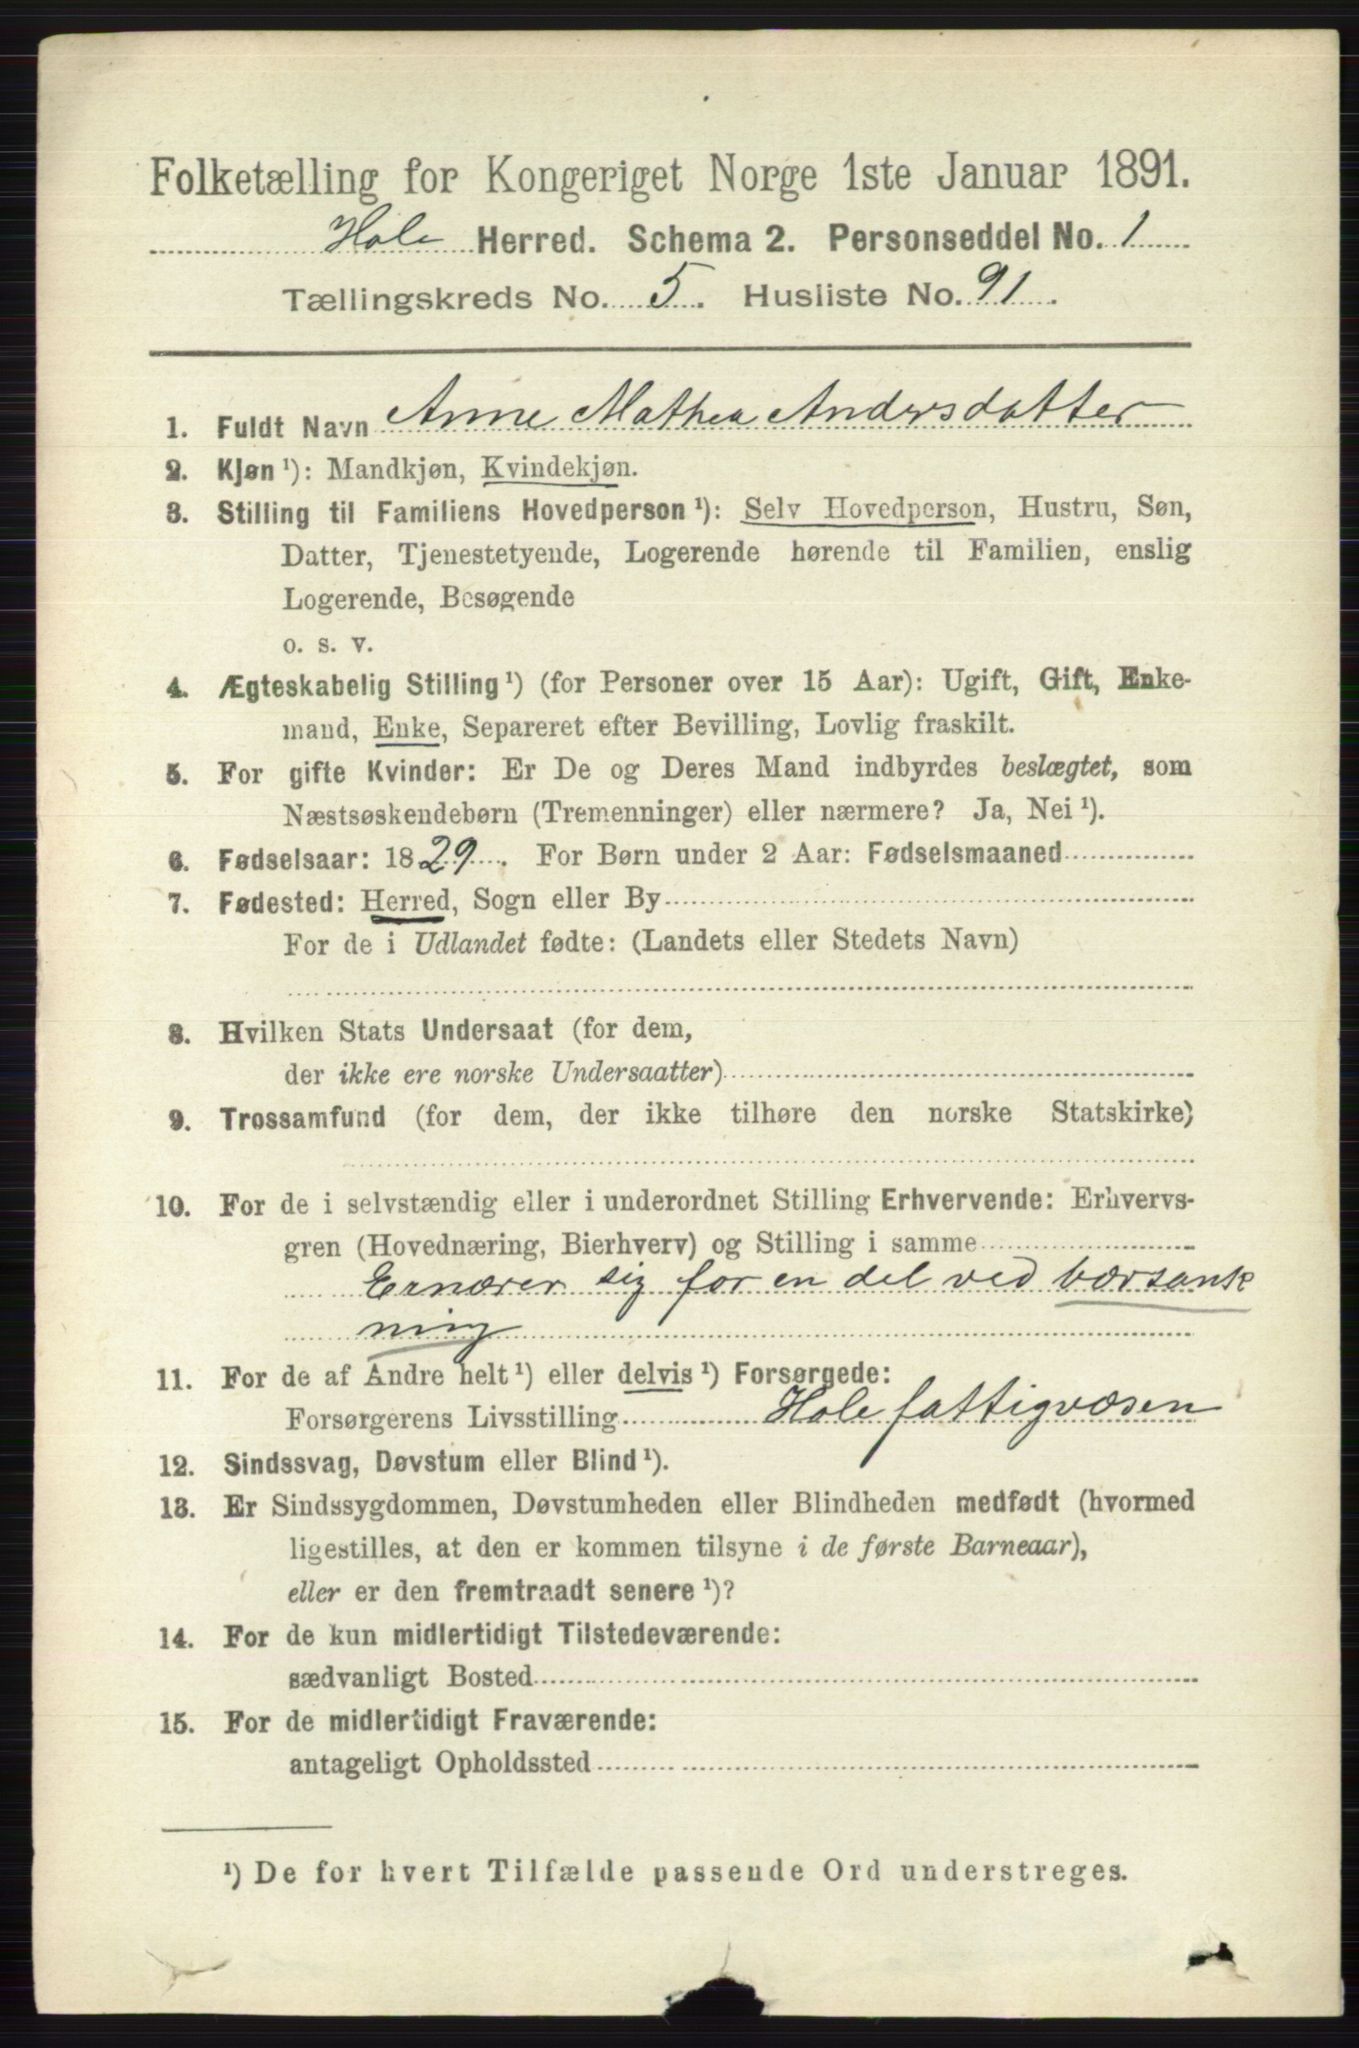 Folketælling for Kongeriget Norge 1ste Januar 1891.
Hole Herred. Schema 2. Personseddel No. 1
Tællingskreds No. 5. Husliste No. 91.
1. Fuldt Navn Anne Mathea Andersdatter
2. Kjøn ¹): Mandkjøn, Kvindekjøn.
3. Stilling til Familiens Hovedperson ¹): Selv Hovedperson, Hustru, Søn,
Datter, Tjenestetyende, Logerende hørende til Familien, enslig
Logerende, Besøgende
o. s. v.
4. Ægteskabelig Stilling ¹) (for Personer over 15 Aar): Ugift, Gift, Enke-
mand, Enke, Separeret efter Bevilling, Lovlig fraskilt.
5. For gifte Kvinder: Er De og Deres Mand indbyrdes beslægtet, som
Næstsøskendebørn (Tremenninger) eller nærmere? Ja, Nei ¹).
6. Fødselsaar: 1829. For Børn under 2 Aar: Fødselsmaaned
7. Fødested: Herred, Sogn eller By
For de i Udlandet fødte: (Landets eller Stedets Navn)
8. Hvilken Stats Undersaat (for dem,
der ikke ere norske Undersaatter)
9. Trossamfund (for dem, der ikke tilhøre den norske Statskirke)
10. For de i selvstændig eller i underordnet Stilling Erhvervende: Erhvervs-
gren (Hovednæring, Bierhverv) og Stilling i samme
Ernærer sig for en del ved bærsank
ning
11. For de af Andre helt ¹) eller delvis ¹) Forsørgede:
Forsørgerens Livsstilling Hole fattigvæsen
12. Sindssvag, Døvstum eller Blind ¹).
13. Er Sindssygdommen, Døvstumheden eller Blindheden medfødt (hvormed
ligestilles, at den er kommen tilsyne i de første Barneaar),
eller er den fremtraadt senere ¹)?
14. For de kun midlertidigt Tilstedeværende:
sædvanligt Bosted
15. For de midlertidigt Fraværende:
antageligt Opholdssted
¹) De for hvert Tilfælde passende Ord understreges.